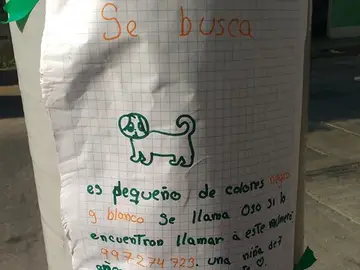 Se busca
es pequeño de colores negro
y blanco se llama Oso si lo
encuentran llamar a este número
997274723. una niña de 7
años